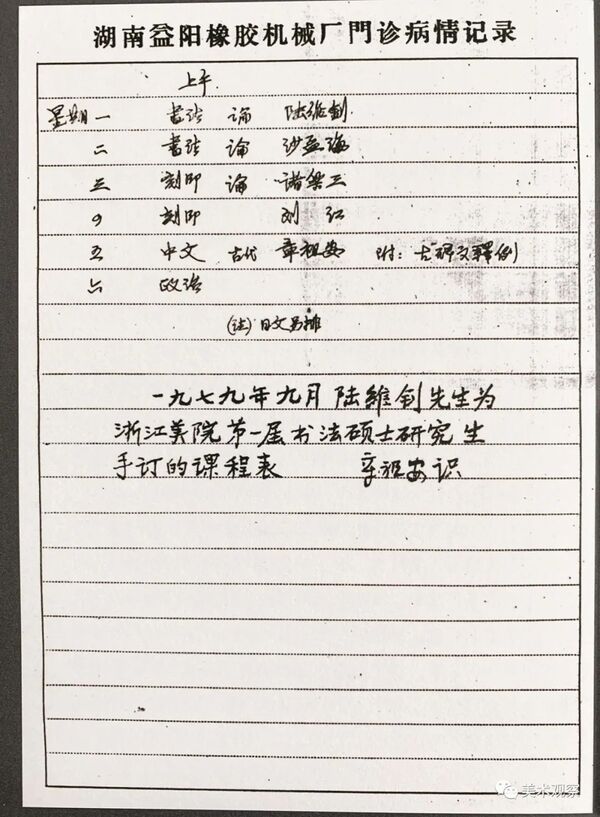 湖南益阳橡胶机械厂門诊病情记录
上午
星期一 書法 論 陆维钊
二 書法 論 沙孟海
三 刻印 論 诸樂三
四 刻印 刘江
五 中文 古代 章祖安 附：古碑文释例
六 政治
(注)日文另排
一九七九年九月陆維钊先生为
浙江美院第一届书法硕士研究生
手订的课程表 章祖安识
美术观察